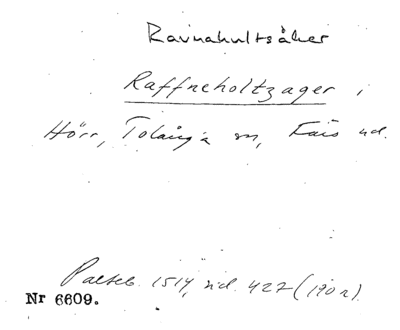 Ravnahultsåker
Raffneholtzager i
Hörr, Tolånga sn, Färs hd.
Palteb. 1514, sid. 427 (190 r).
Nr 6609.